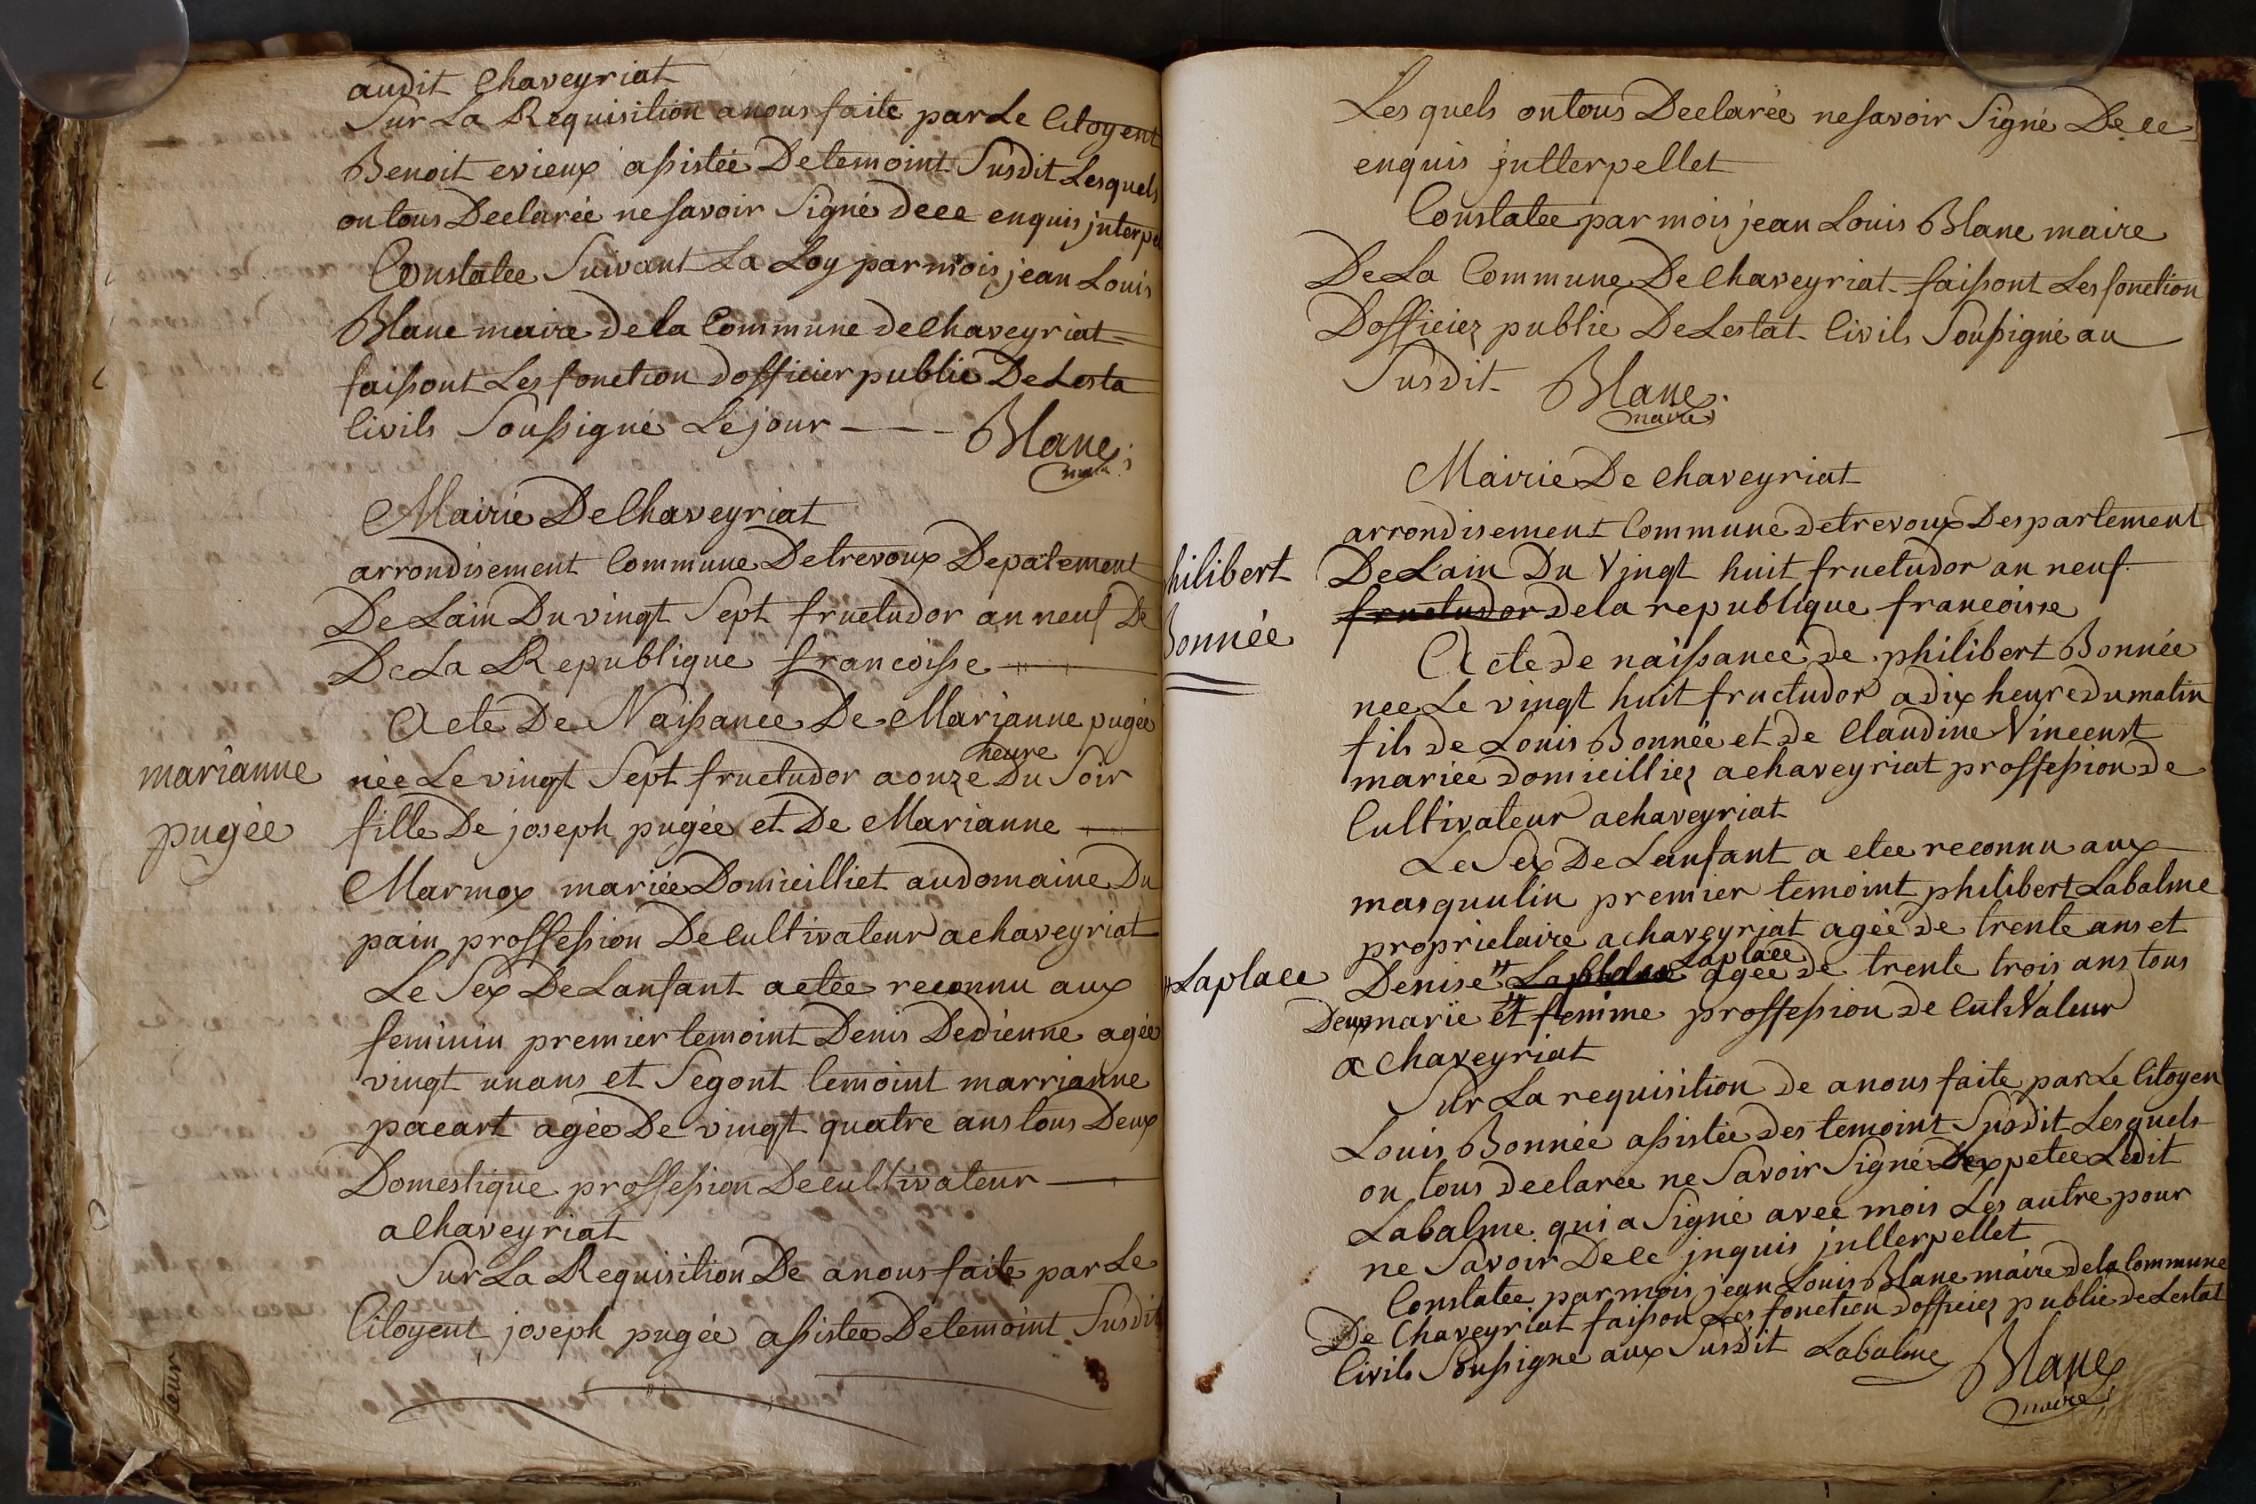 audit Chaveyriat
Sur La Requisition anous faite par Le Citoyent
Benoit evieux assistée De temoint Susdit Lesquels
on tous Declarée ne savoir Signé De ce enquis jnterpel
Constatee Suivant La Loy par mois jean Louis
Blanc maire de la Commune de Chaveyriat
faissont Les fonction dofficier public De Lesta
Civils Soussigné Le jour
Blanc
maire
Mairie De Chaveyriat
arrondisement Commune De trevoux Depatement
De Lain Du vingt Sept fructudor an neuf De
De La Republique francoisse
Acte De Naissancee De Marianne pugée
heure
née Le vingt Sept fructudor a onze Du Soir
marianne
pugée
fille De joseph pugée et De Marianne
Marmox mariée Domicilliet au domaine Du
pain proffession De Cultivateur a chaveyriat
Le Sex De Lanfant a etée reconnu aux
feminin premier temoint Denis Dedienne agée
vingt un ans et Segont temoint marrianne
pacart agée De vingt quatre ans tous Deux
Domestique proffession De cultivateur
a Chaveyriat
Sur La Requisition De anous faite par Le
Citoyent joseph pugée assistee De temoint Susdit
Les quels on tous Declarée ne savoir Signé De ce
enquis jntterpellet
Constatee par mois jean Louis Blanc maire
De La Commune De Chaveyriat faissont Les fonction
Dofficiez public De Lestat Civils Soussigné au
Susdit
Blanc
maire
Mairie De Chaveyriat
arrondisement Commune de trevoux Despartement
De Lain Du Vingt huit fructudor an neuf
fructudor de la republique francoisse
hilibert
Bonnée
Acte de naissancee de philibert Bonnée
nee Le vingt huit fructudor a dix heure du matin
fils de Louis Bonnée et de Claudine Vincenst
mariée domicilliez a chaveyriat proffession de
Cultivateur a chaveyriat
Le Sex De Lanfant a etee reconnu aux
masquulin premier temoint philibert Labalme
proprietaire a chaveyriat agée de trente ans et
Laplace
Denise agée de trente trois ans tous
Laplace
Deux marie et femme proffession de CultiValeur
a chaveyriat
Sur La requisition de anous faite par Le Citoyen
Louis Bonnée assistée des temoint Susdit Lesquels
on tous declarée ne Savoir Signé Dexpetee Ledit
Labalme qui a Signé avec mois Les autre pour
ne Savoir De ce jnquis jntterpellet
Constatee par mois jean Louis Blanc maire de la Commune
De Chaveyriat faisson Les fonction dofficiez public de Lestat
Civils Soussigne aux Susdit
Labalme
Blanc
maire